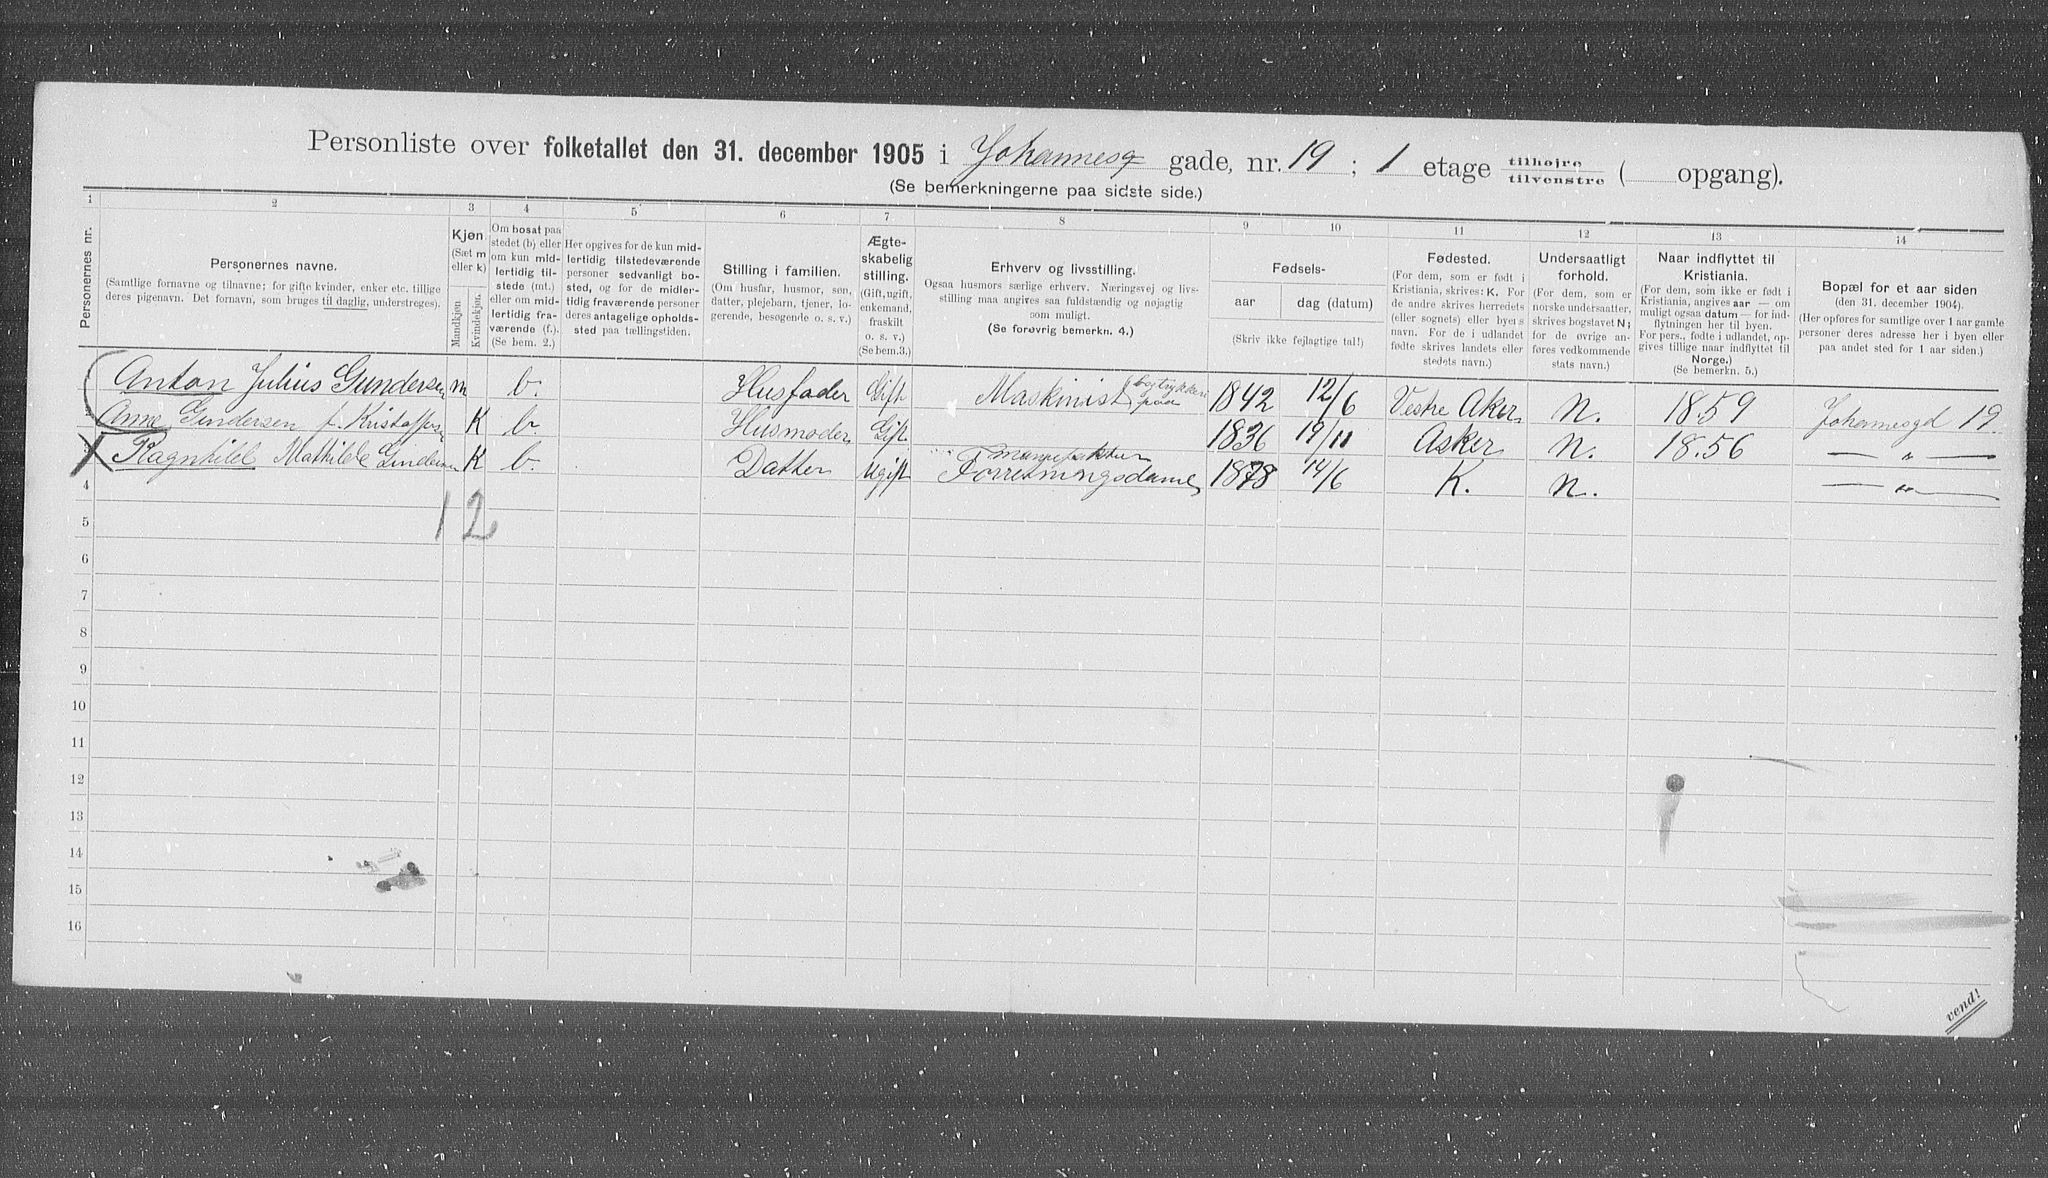 Personliste over folketallet den 31. december 1905 i Johannesg gade, nr. 19 ; 1 etage tilhøjre tilvenstre ( opgang).
(Se bemerkningerne paa sidste side.)
1 2 3 4 5 6 7 8 9 10 11 12 13 14
Personernes nr.
Personernes navne.
(Samtlige fornavne og tilnavne; for gifte kvinder, enker etc. tillige
deres pigenavn. Det fornavn, som bruges til daglig, understreges).
Kjøn.
(Sæt m
eller k)
Mandkjøn.
Kvindekjøn.
Om bosat paa
stedet (b) eller
om kun mid-
lertidig til-
stede (mt.)
eller om mid-
lertidig fra-
værende (f.).
(Se bem. 2.)
Her opgives for de kun mid-
lertidig tilstedeværende
personer sedvanligt bo-
sted, og for de midler-
tidig fraværende personer
deres antagelige opholds-
sted paa tællingstiden.
Stilling i familien.
(Om husfar, husmor, søn,
datter, plejebarn, tjener, lo-
gerende, besøgende o. s. v.)
Ægte-
skabelig
stilling.
(Gift, ugift,
enkemand,
fraskilt
o. s. v.)
(Se bem. 3.)
Erhverv og livsstilling.
Ogsaa husmors særlige erhverv. Næringsvej og livs-
stilling maa angives saa fuldstændig og nøjagtig
som muligt.
(Se forøvrig bemerkn. 4.)
Fødsels-
aar
dag (datum)
(Skriv ikke fejlagtige tal!)
Fødested.
(For dem, som er født i
Kristiania, skrives: K. For
de andre skrives herredets
(eller sognets) eller byens
navn. For de i udlandet
fødte skrives landets eller
stedets navn.)
Undersaatligt
forhold.
(For dem, som er
norske undersaatter,
skrives bogstavet N;
for de øvrige an-
føres vedkommende
stats navn.)
Naar indflyttet til
Kristiania.
(For dem, som ikke er født i
Kristiania, angives aar — om
muligt ogsaa datum — for ind-
flytningen her til byen.
For pers., fødte i udlandet, op-
gives tillige naar indflyttet til
Norge.)
(Se bemerkn. 5.)
Bopæl for et aar siden
(den 31. december 1904).
(Her opføres for samtlige over 1 aar gamle
personer deres adresse her i byen eller
paa andet sted for 1 aar siden.)
Anton Julius Gundersen m b. Husfader Gift Maskinist paa 1842 12/6 Vestre Aker N. 1859 Johannesgd 19
Anne Gundersen f. Kristoffersen K b. Husmoder Gift 1836 19/11 Asker N. 1856 — " —
Ragnhild Mathilde Gundersen K b. Datter Ugift Manufaktur Forretningsdame 1878 14/6 K. N. — " —
4
12
5
6
7
8
9
10
11
12
13
14
15
16
vend!